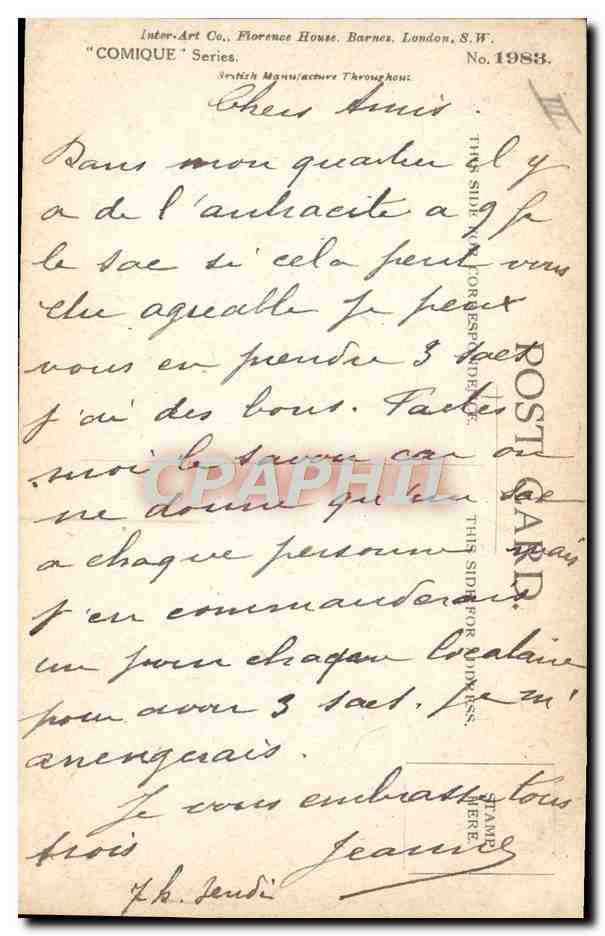 Inter-Art Co., Florence House, Barnes, London, S.W.
"COMIQUE" Series. No. 1983.
British Manufacture Throughout
III
Chers Amis.
Dans mon quartier il y
a de l'antracite a 9 fr
le sac si cela peut vous
etre agreable je peux
vous en prendre 3 sacs
j'ai des bons. Faites
moi le savoir car on
ne donne qu'un sac
a chaque personne mais
j'en commanderais
un pour chaque locataire
pour avoir 3 sacs. Je m'
arrengerais.
Je vous embrasse tous
trois Jeanne
7 h. Jeudi
THIS SIDE FOR CORRESPONDENCE.
POST CARD.
THIS SIDE FOR ADDRESS.
STAMP
HERE.
CPAPHIL